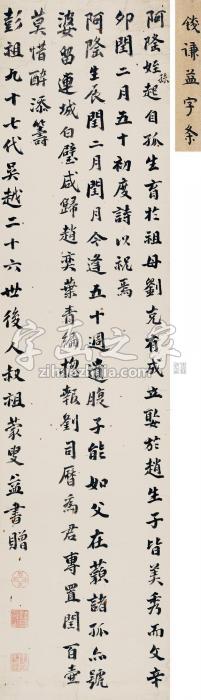 阿隆姪孫起自孤生育於祖母劉克有成立娶於趙生子皆美秀而文辛
卯閏二月五十初度詩以祝焉
阿隆生辰閏二月閏月今逢五十週遺腹子能如父在藐諸孤亦號
婆留連城白璧咸歸趙奕葉青緗抱報劉司曆為君專置閏百壺
莫惜醉添籌
彭祖九十七代吳越二十六世後人叔祖蒙叟益書贈
錢谦益字条
字画之家
zihuazhijia.com